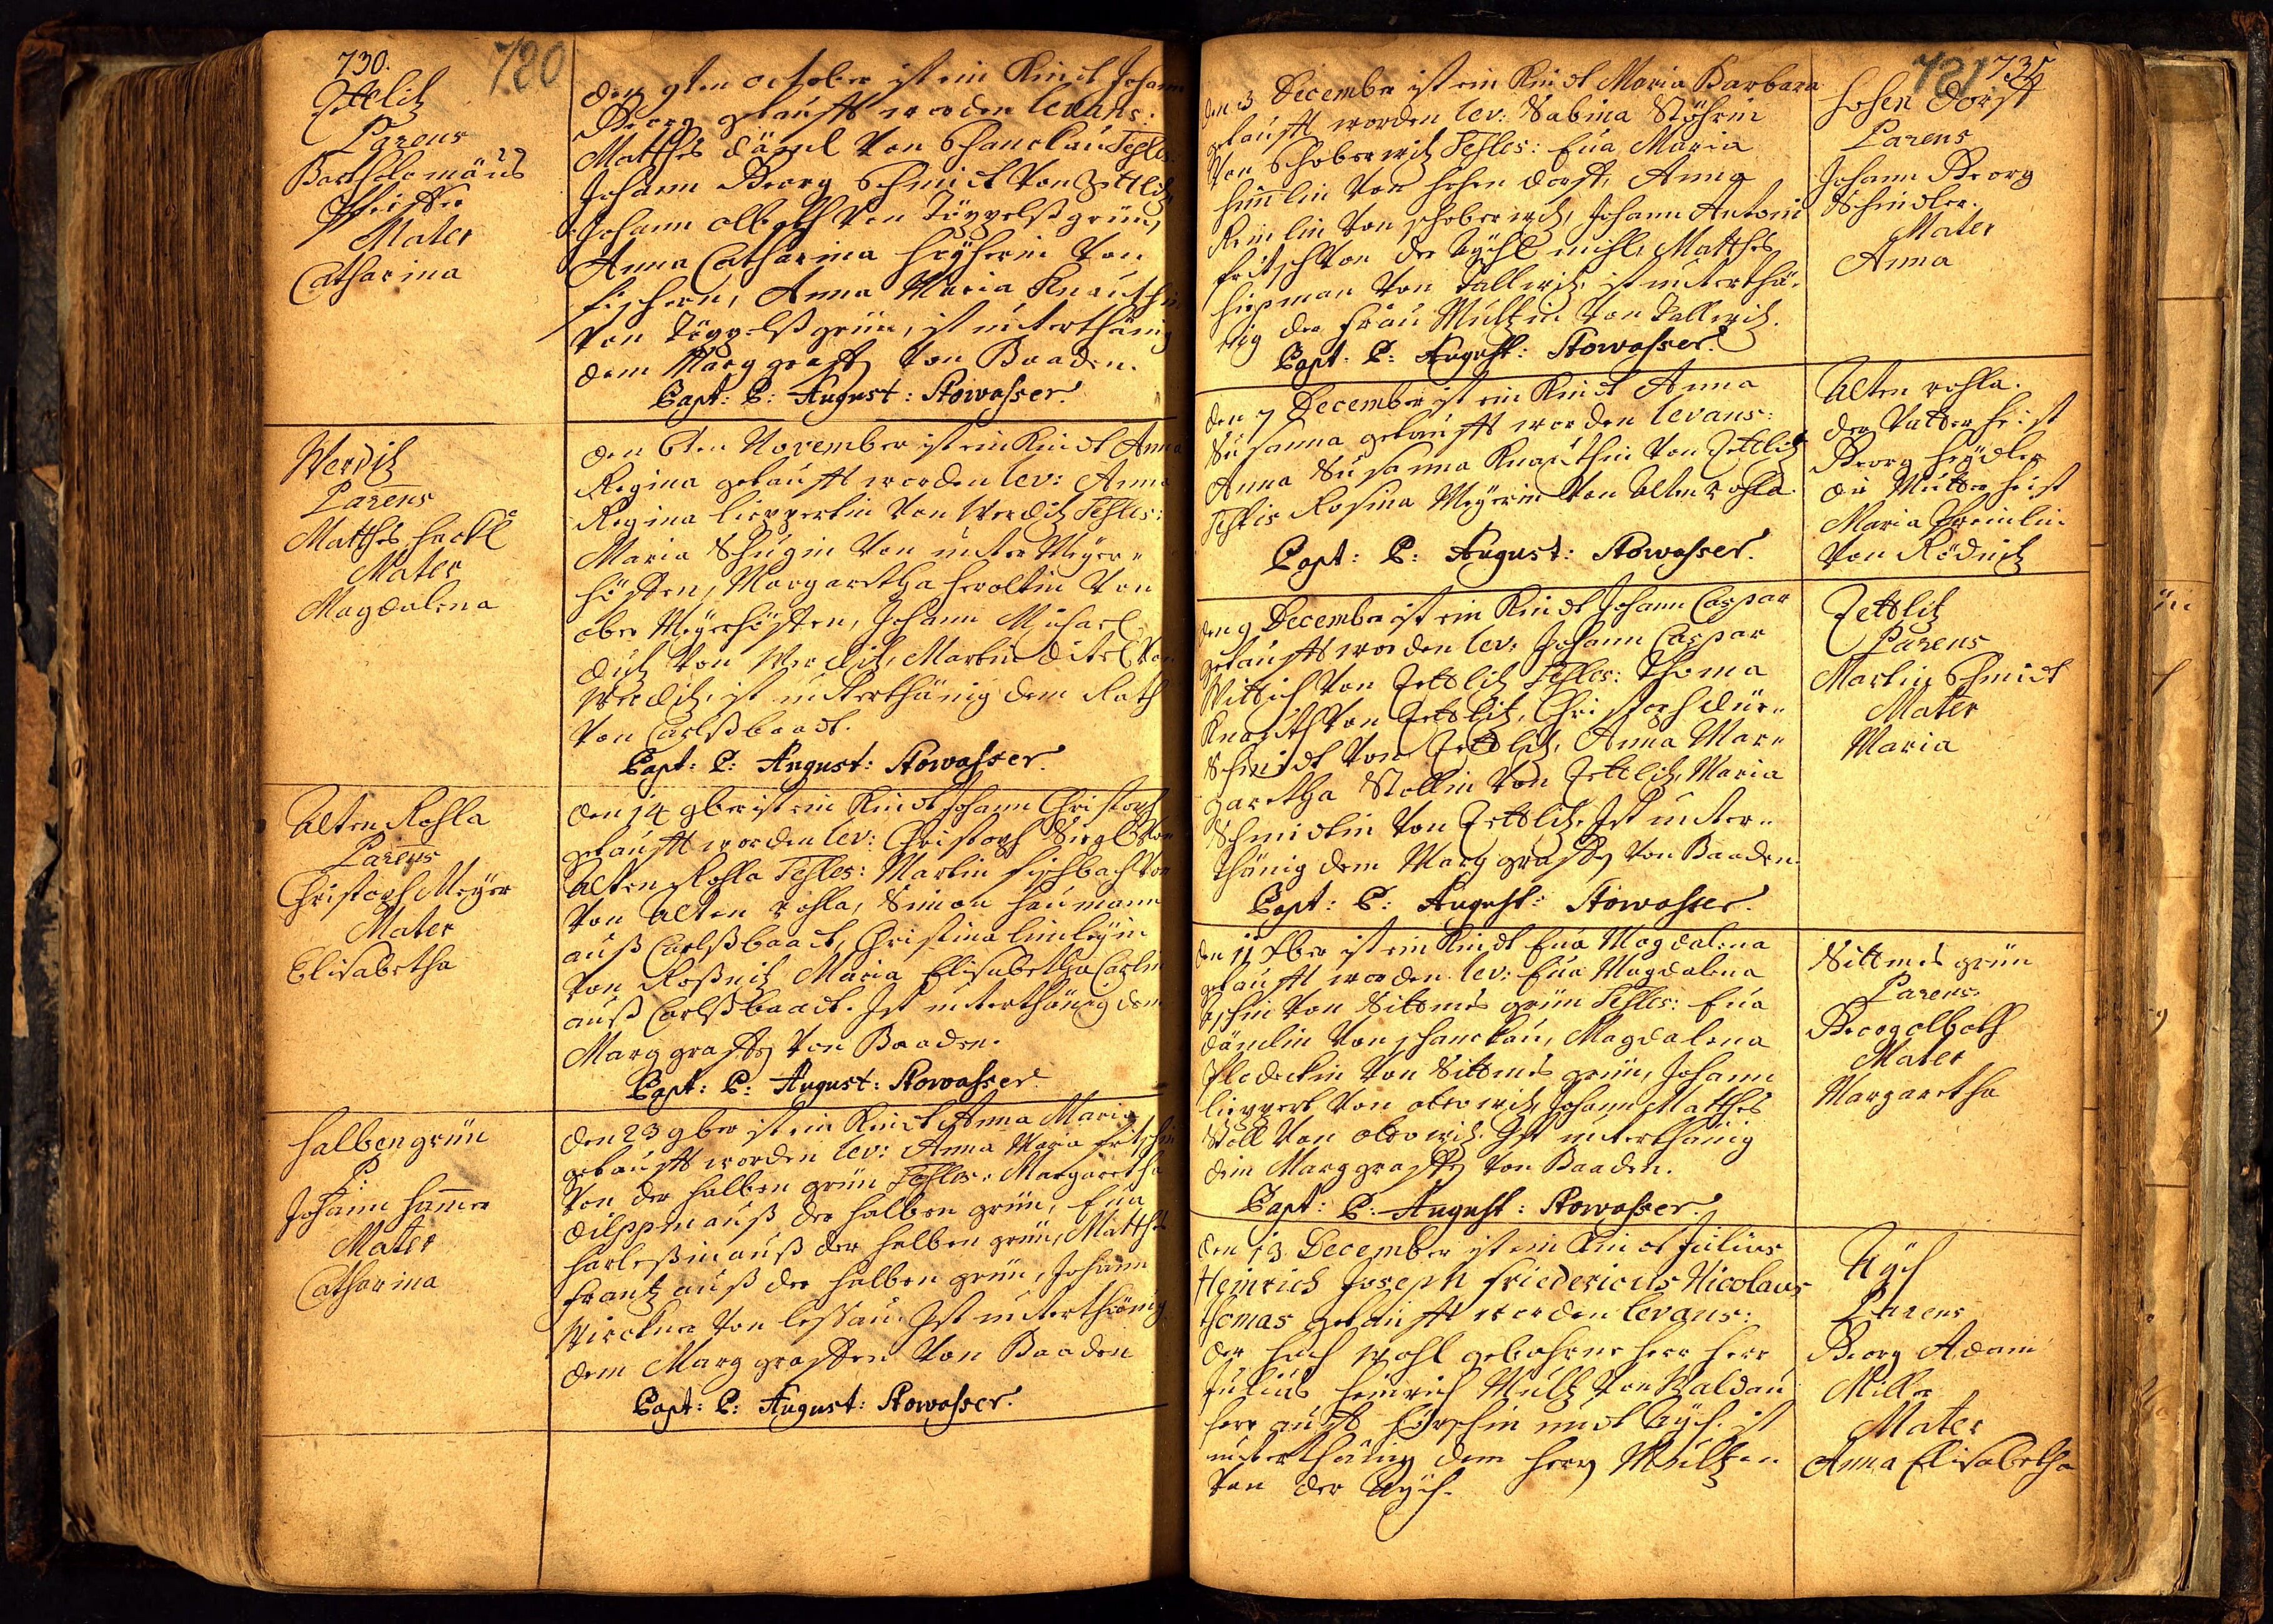 730.
720
Zettlitz
Parens
Bartholomäus
Mater
Catharina
den 9ten october ist ein Kindt Johann
Georg getaufft worden levans:
Matthes Däml von Schanckau Testes:
Johann Georg Schmidt von Zettlitz
Johann Albeth von Töppelßgrün,
Anna Catharina Heÿherin von
Fischern, Anna Maria Knauthin
von Töppelßgrün, ist unterthänig
dem Marggraffen von Baaden.
Bapt: P: August: Stowasser.
Werditz
Parens
Matthes Heckl
Mater
Magdalena
den 6ten November ist ein Kindt Anna
Regina getaufft worden lev: Anna
Regina Lippertin von Werditz Testes:
Maria Schugin von unter Meÿer-
höffen, Margaretha Heroltin von
ober Meÿerhöffen, Johann Michael
Dietz von Werditz, Martin Dietl von
Werditz, ist unterthänig dem Rath
von Carlßbaadt.
Bapt: P: August: Stowasser.
Alten Rohla
Parens
Christoph Meÿer
Mater
Elisabetha
den 14 9ber ist ein Kindt Johann Christoph
getaufft worden lev: Christoph Siegl von
Alten Rohla Testes: Martin Fischbach von
von Alten rohla, Simon Haumann
auß Carlßbaadt, Christina
von Roßnitz Maria Elisabetha Carlin
auß Carlßbaadt. Ist unterthänig dem
Marggraffen von Baaden.
Bapt: P: August: Stowasser.
Halbengrün
P:
Johann Hamer
Mater
Catharina
den 23 9ber ist ein Kindt Anna Maria
getaufft worden lev: Anna Maria Fritschin
von der halben grün Testes: Margaretha
auß der halben grün, Eua
Harleßin auß der halben grün, Matthes
Frantz auß der halben grün, Johann
Wirckner von Lessau. Ist unterthänig
dem Marggraffen von Baaden
Bapt: P: August: Stowasser.
721
731
den 3 December ist ein Kindt Maria Barbara
getaufft worden lev: Sabina Stöhrin
von Schoberwitz Testes: Eua Maria
von hohen dorff, Anna
von schoberwitz, Johann Antoni
Fritsch von der Aÿchl mihl, Matthes
von Tallwitz, ist unterthä-
nig der Frau Multzin von Tallwitz.
Bapt: P: August: Stowasser.
Hohen dorff
Parens
Johann Georg
Schindler.
Mater
Anna
den 7 December ist ein Kindt Anna
Susanna getaufft worden levans:
Anna Susanna Knauthin von Zettlitz
Testis Rosina Meÿerin von Alten rohla.
Bapt: P: August: Stowasser.
Alten rohla.
der Vatter heist
Georg Heÿdler
die Mutter heist
Maria
von Rödnitz
den 9 December ist ein Kindt Johann Caspar
getaufft worden lev: Johann Caspar
Wittich von Zettlitz Testes: Thoma
Knauth von Zettlitz, Christoph Dür-
schmidt von Zettlitz, Anna Mar-
garetha Stollin von Zettlitz, Maria
Schmidtin von Zettlitz. Ist unter-
thänig dem Marggraffen von Baaden.
Bapt: P: August: Stowasser.
Zettlitz
Parens
Martin Schmidt
Mater
Maria
den 11 Xber ist ein Kindt Eua Magdalena
getaufft worden. lev: Eua Magdalena
von Sittmes grün Testes: Eua
Dämlin von schanckau, Magdalena
von Sittmes grün, Johann
Lippert von Aldowitz, Johann Matthes
Stoll von Aldowitz. Ist unterthänig
dem Marggraffen von Baaden.
Bapt: P: August: Stowasser.
Sittmes grün
Parens.
Georg Albeth
Mater
Margaretha
den 13 December ist ein Kindt Julius
Heinrich Joseph Friedericus Nicolaus
Thomas getaufft worden levans:
der hoch wohl gebohrne Herr Herr
Julius Heinrich Multz von Waldau
Herr auff und Aÿch. ist
unterthänig dem Herrn Multzen
von der Aÿch.
Aÿch
Parens
Georg Adam
Miller
Mater
Anna Elisabetha